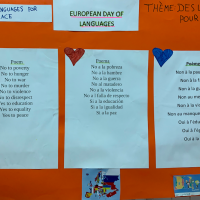 EUROPEAN DAY OF
LANGUAGES
LANGUAGES FOR
ACE
THÈME DES L
POUR
Poem
No to poverty
No to hunger
No to war
No to murder
No to violence
No to disrespect
Yes to education
Yes to equality
Yes to peace
Poema
No a la pobreza
No a la hambre
No a la guerra
No al matadero
No a la violencia
No a l falta de respecto
Si a la educación
Si a la igualdad
Si a la paz
Poème
Non à la pau
Non à la
Non à la gue
Non au me
Non à la vio
Non au manque
Oui à l'édu
Oui à l'éga
Oui à la